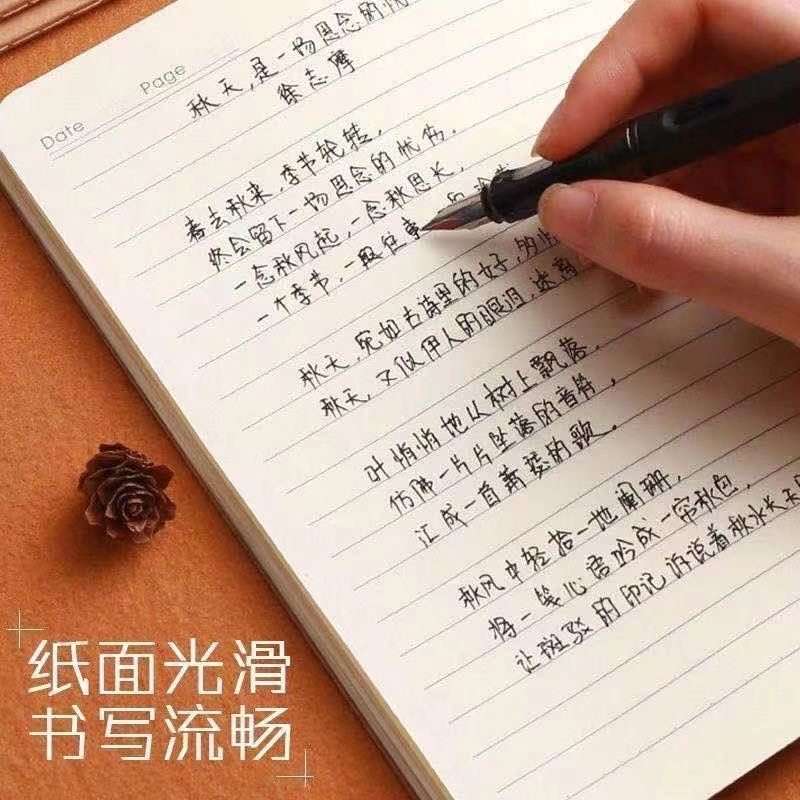 Date
Page
秋天,是一场思念的忧
徐志摩
春去秋来,季节轮转,
终会留下一场思念的忧伤.
一念秋风起,一念秋思长,
一个季节,一段往事
秋天,宛如古诗里的女子,
秋天,又似伊人的眼泪,迷离
叶悄悄地从树上飘落,
仿佛一片片坠落的音符,
汇成一首萧瑟的歌。
秋风中轻拾一地阑珊,
将一笺心语吟成一帘秋色,
让斑驳的印记诉说着秋水长天
纸面光滑
书写流畅